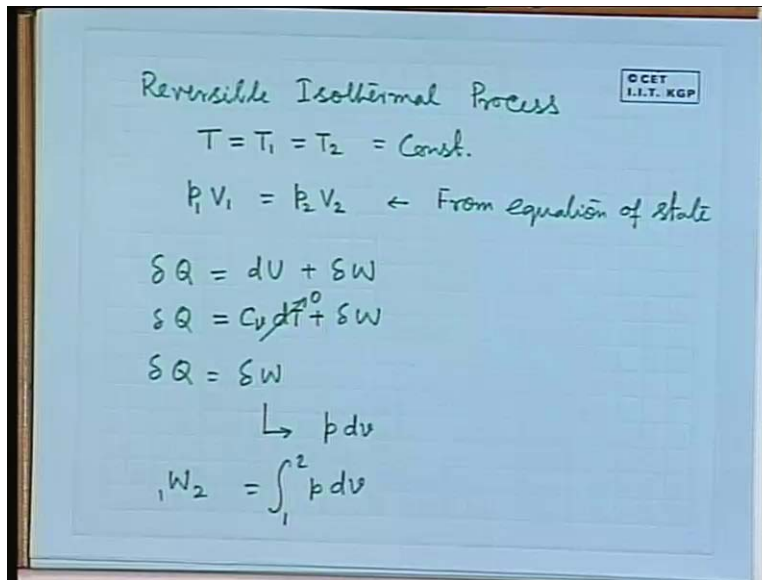 Reversible Isothermal Process
© CET
I.I.T. KGP
T = T₁ = T₂ = Const.
p₁ V₁ = p₂ V₂ ← From equation of state
δQ = dU + δW
δQ = Cᵥ dT⁰ + δW
δQ = δW
↳ p dv
₁W₂ = ∫₁² p dv